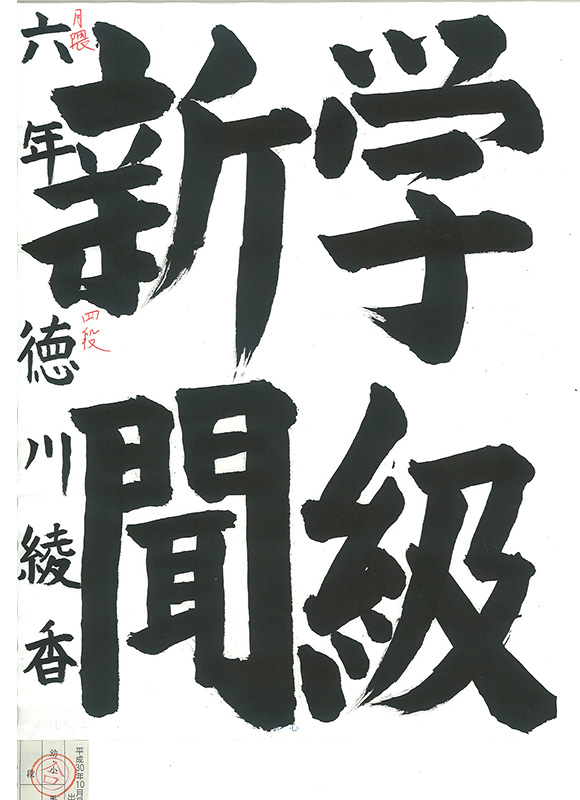 学級
新聞
六年 徳川綾香
月隈
四段
平成30年10月
幼小
段
出